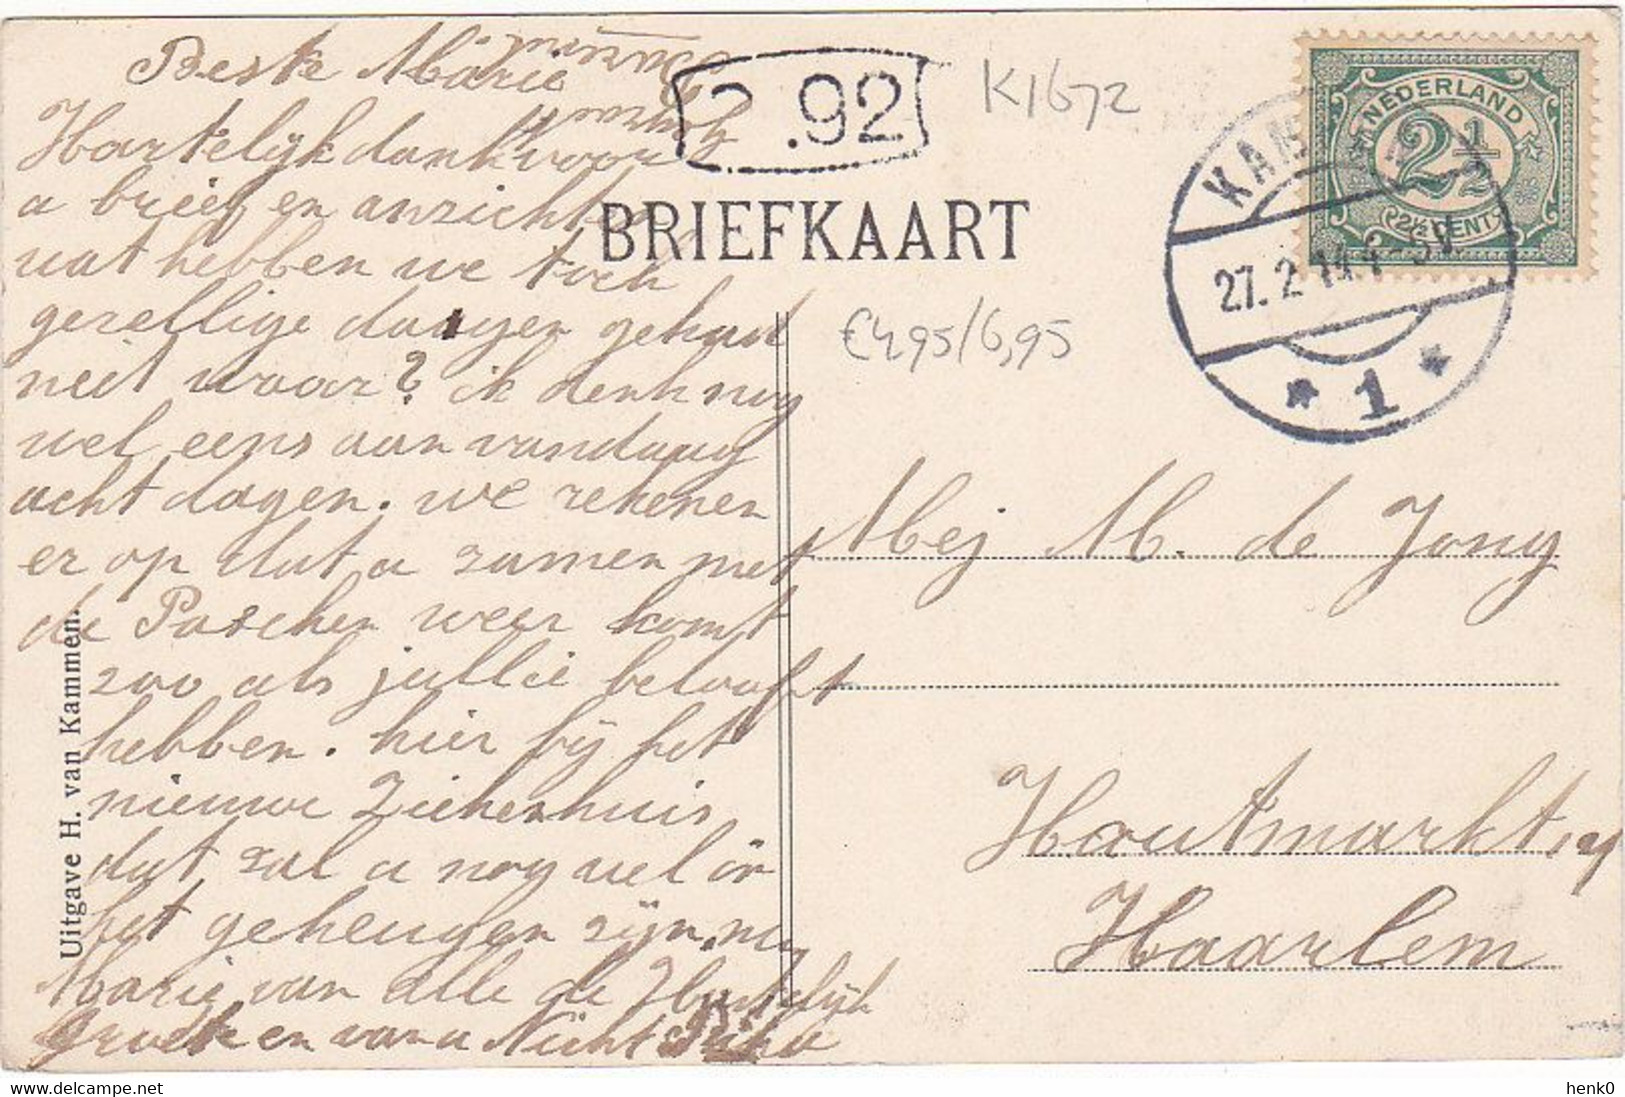 Beste Marie
Hartelijk dank voor
u brief en anzichten
wat hebben we toch
gezellige dangen gehad
niet waar? ik denk nog
wel eens aan vandaag
acht dagen. we rekenen
er op dat u zamen met
de Paschen weer komt
zoo als jullie belooft
hebben. hier bij het
nieuwe Ziekenhuis
dat zal u nog wel in
het geheugen zijn. nu
Marie van alle de Hartelijk
Groeten en van u Nicht
Uitgave H. van Kammen.
.92
K1672
BRIEFKAART
€4,95/6,95
NEDERLAND
2½
2½ CENT
27.2.14
1
Mej M. de Jong
Houtmarkt
Haarlem
henk0